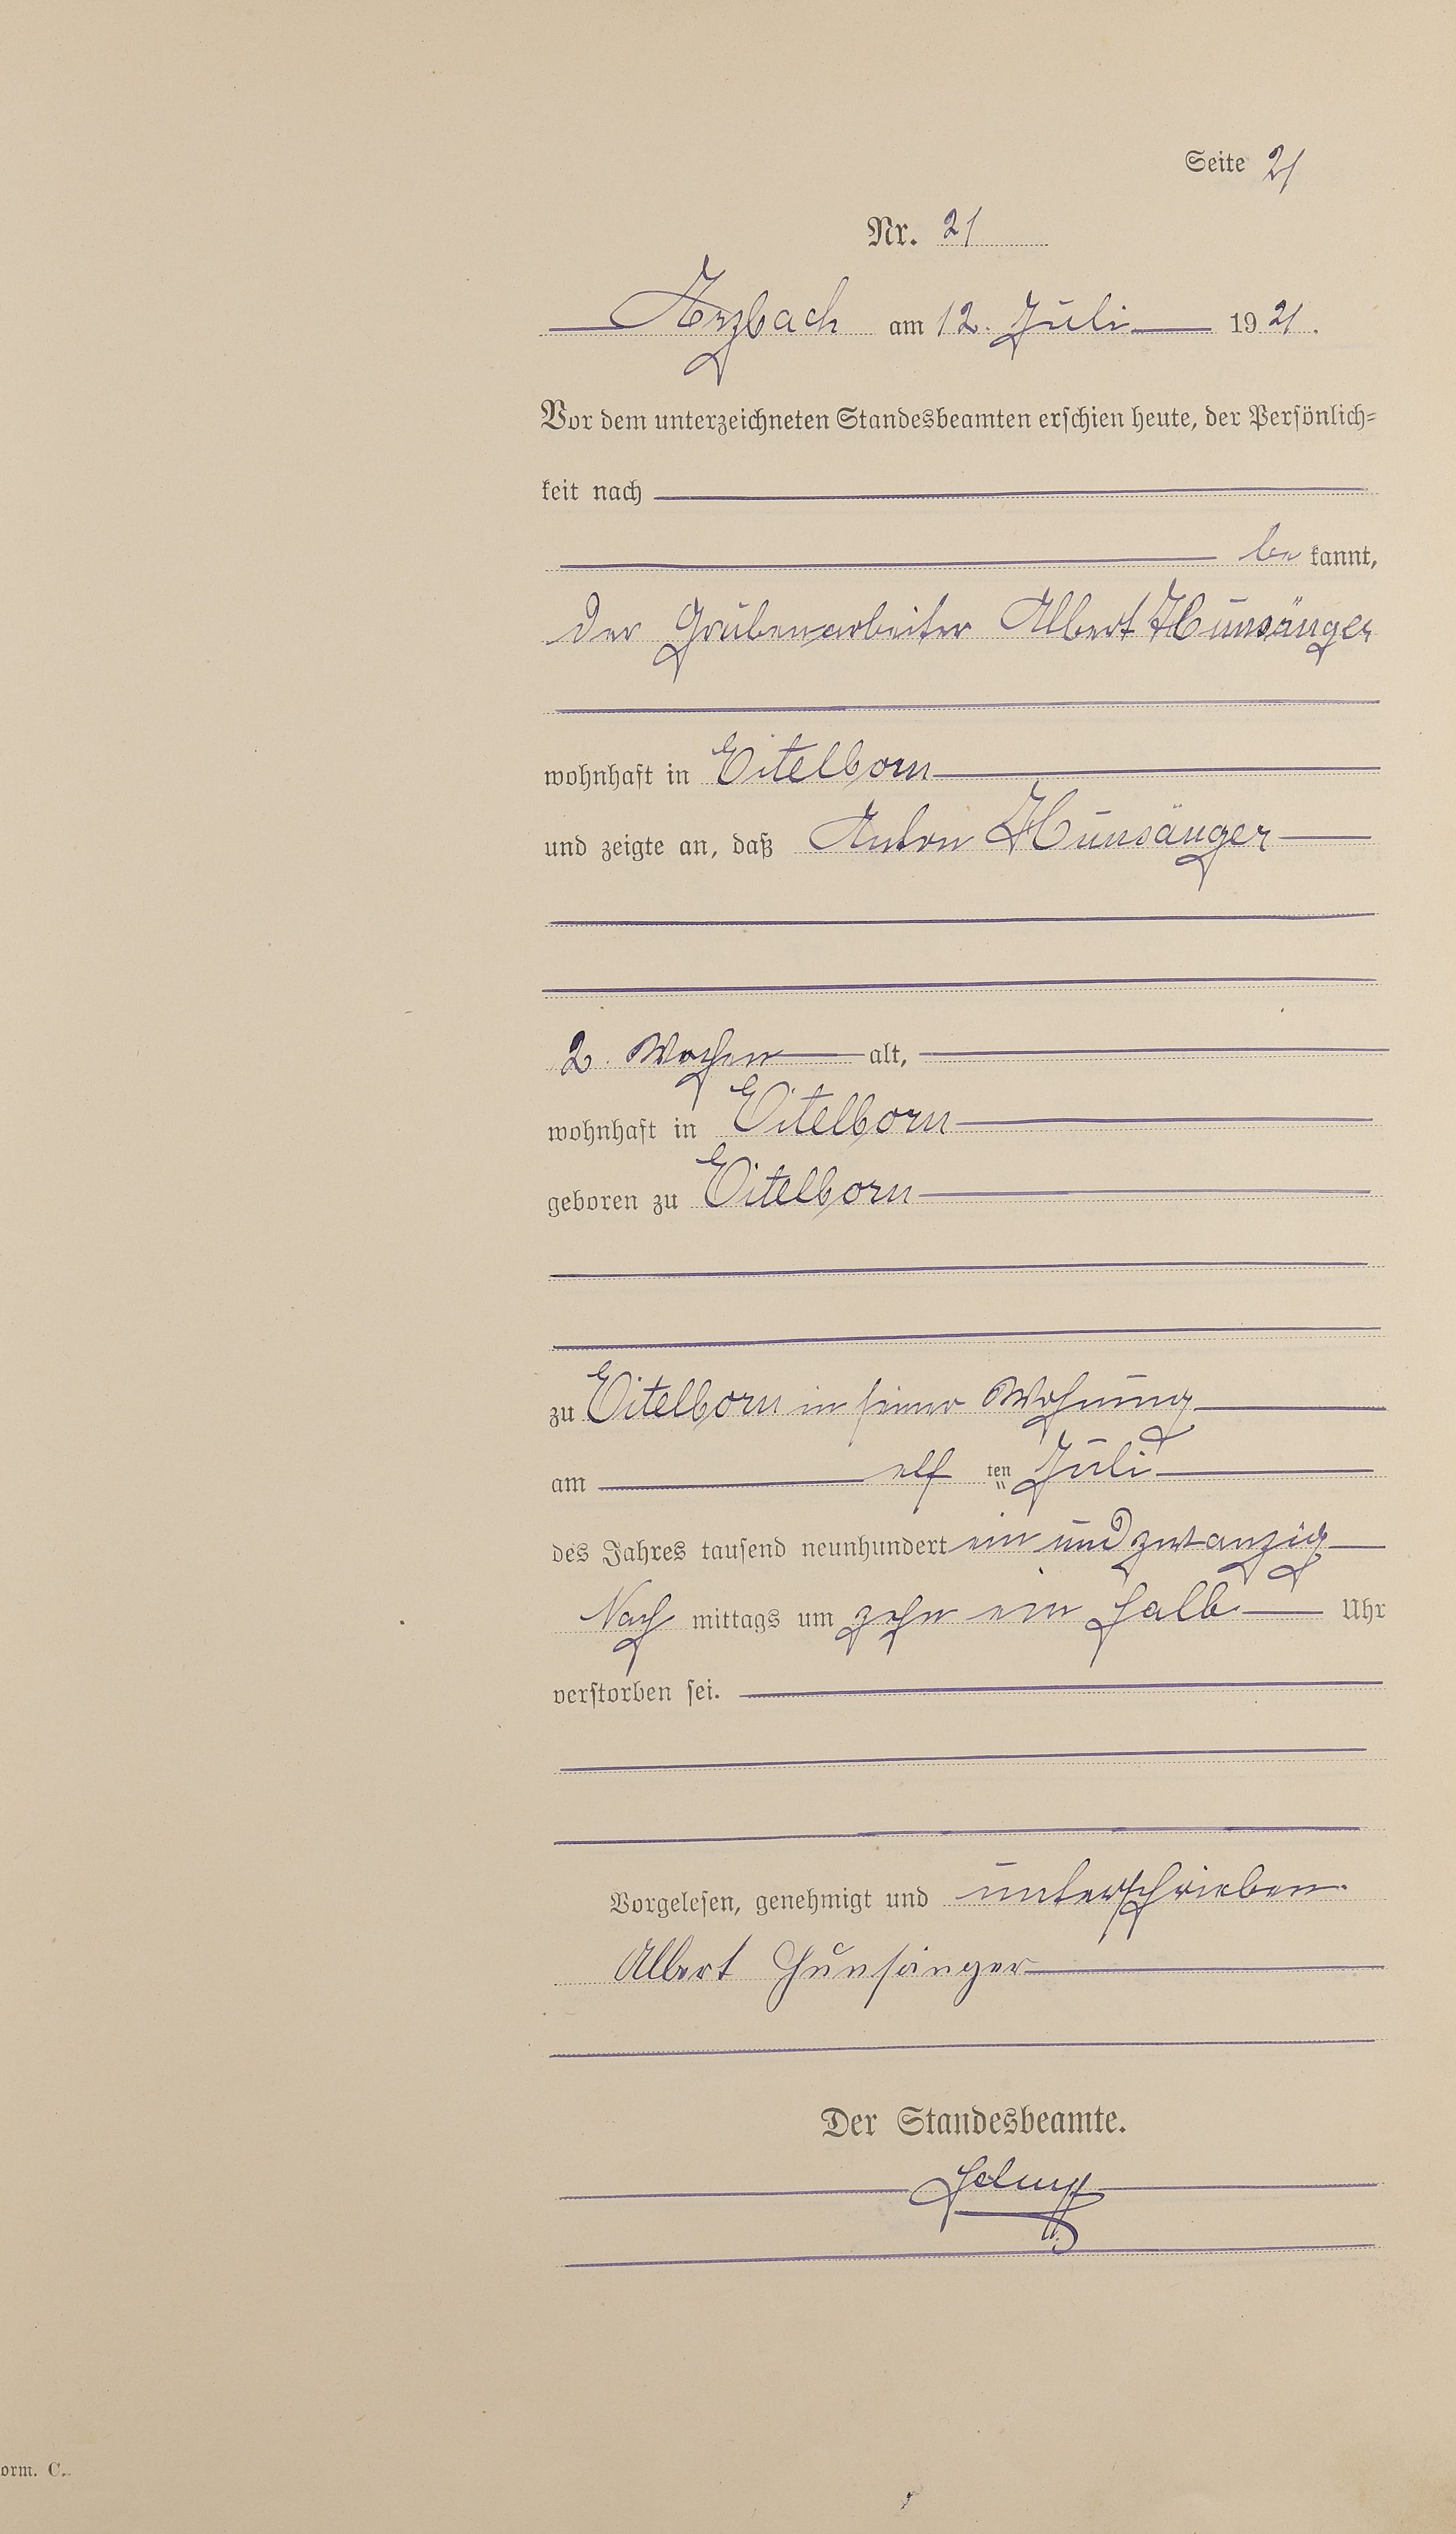 Seite 21
Nr. 21
Arzbach am 12. Juli 1921.
Vor dem unterzeichneten Standesbeamten erschien heute, der Persönlich=
keit nach
be kannt,
der Grubenarbeiter Albert Hunsänger
wohnhaft in Eitelborn
und zeigte an, daß Anton Hunsänger
2. Wochen alt,
wohnhaft in Eitelborn
geboren zu Eitelborn
zu Eitelborn in seiner Wohnung
am elf ten Juli
des Jahres tausend neunhundert ein und zwanzig
Nach mittags um zehn ein halb Uhr
verstorben sei.
Vorgelesen, genehmigt und unterschrieben.
Albert Hunsänger
Der Standesbeamte.
orm. C.